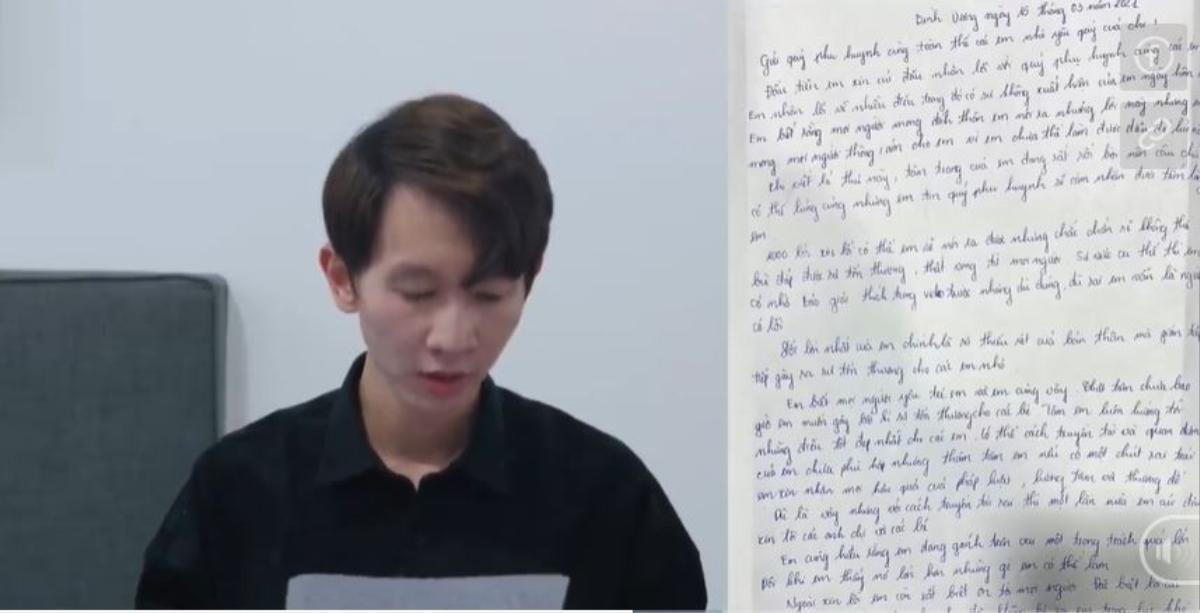 Bình Dương ngày 15 tháng 03 năm 2021
Gửi quý phụ huynh cùng toàn thể các em nhỏ yêu quý của chị,
Đầu tiên em xin cúi đầu nhận lỗi với quý phụ huynh cùng các em
Em nhận lỗi về nhiều điều trong đó có sự không xuất hiện của em ngày hôm
Em biết rằng mọi người mong đích thân em nói ra những lời này nhưng
mong mọi người thông cảm cho em vì em chưa thể làm được điều đó
Khi viết lá thư này, tâm trạng của em đang rất rối bời nên câu chữ
có thể lủng củng nhưng em tin quý phụ huynh sẽ cảm nhận được tâm
em
1000 lời xin lỗi có thể em sẽ nói ra được nhưng chắc chắn sẽ không thể
bù đắp được sự tổn thương, thất vọng từ mọi người. Sự việc cụ thể thì em
có nhờ giải thích từng video trước nhưng dù đúng, dù sai em vẫn là người
có lỗi
lỗi lớn nhất của em chính là sự thiếu sót của bản thân mà gián
tiếp gây ra sự tổn thương cho các em nhỏ
Em biết mọi người yêu trẻ em và em cũng vậy. Thật tâm chưa bao
giờ em muốn gây bất kì sự tổn thương cho các bé. Tâm em luôn hướng tới
những điều tốt đẹp nhất cho các em. Có thể cách truyền tải và quan điểm
của em chưa phù hợp nhưng thâm tâm em nếu có một chút sai trái
em xin nhận mọi hậu quả của pháp luật, lương tâm và thượng đế
Dù là vậy nhưng với cách truyền tải sai thì một lần nữa em cúi đầu
xin lỗi các anh chị và các bé
Em cũng hiểu rằng em đang gánh trên vai một trọng trách quá lớn
Đôi khi em thấy nó lớn hơn những gì em có thể làm
Ngoài xin lỗi em còn rất biết ơn từ mọi người. Đặc biệt là